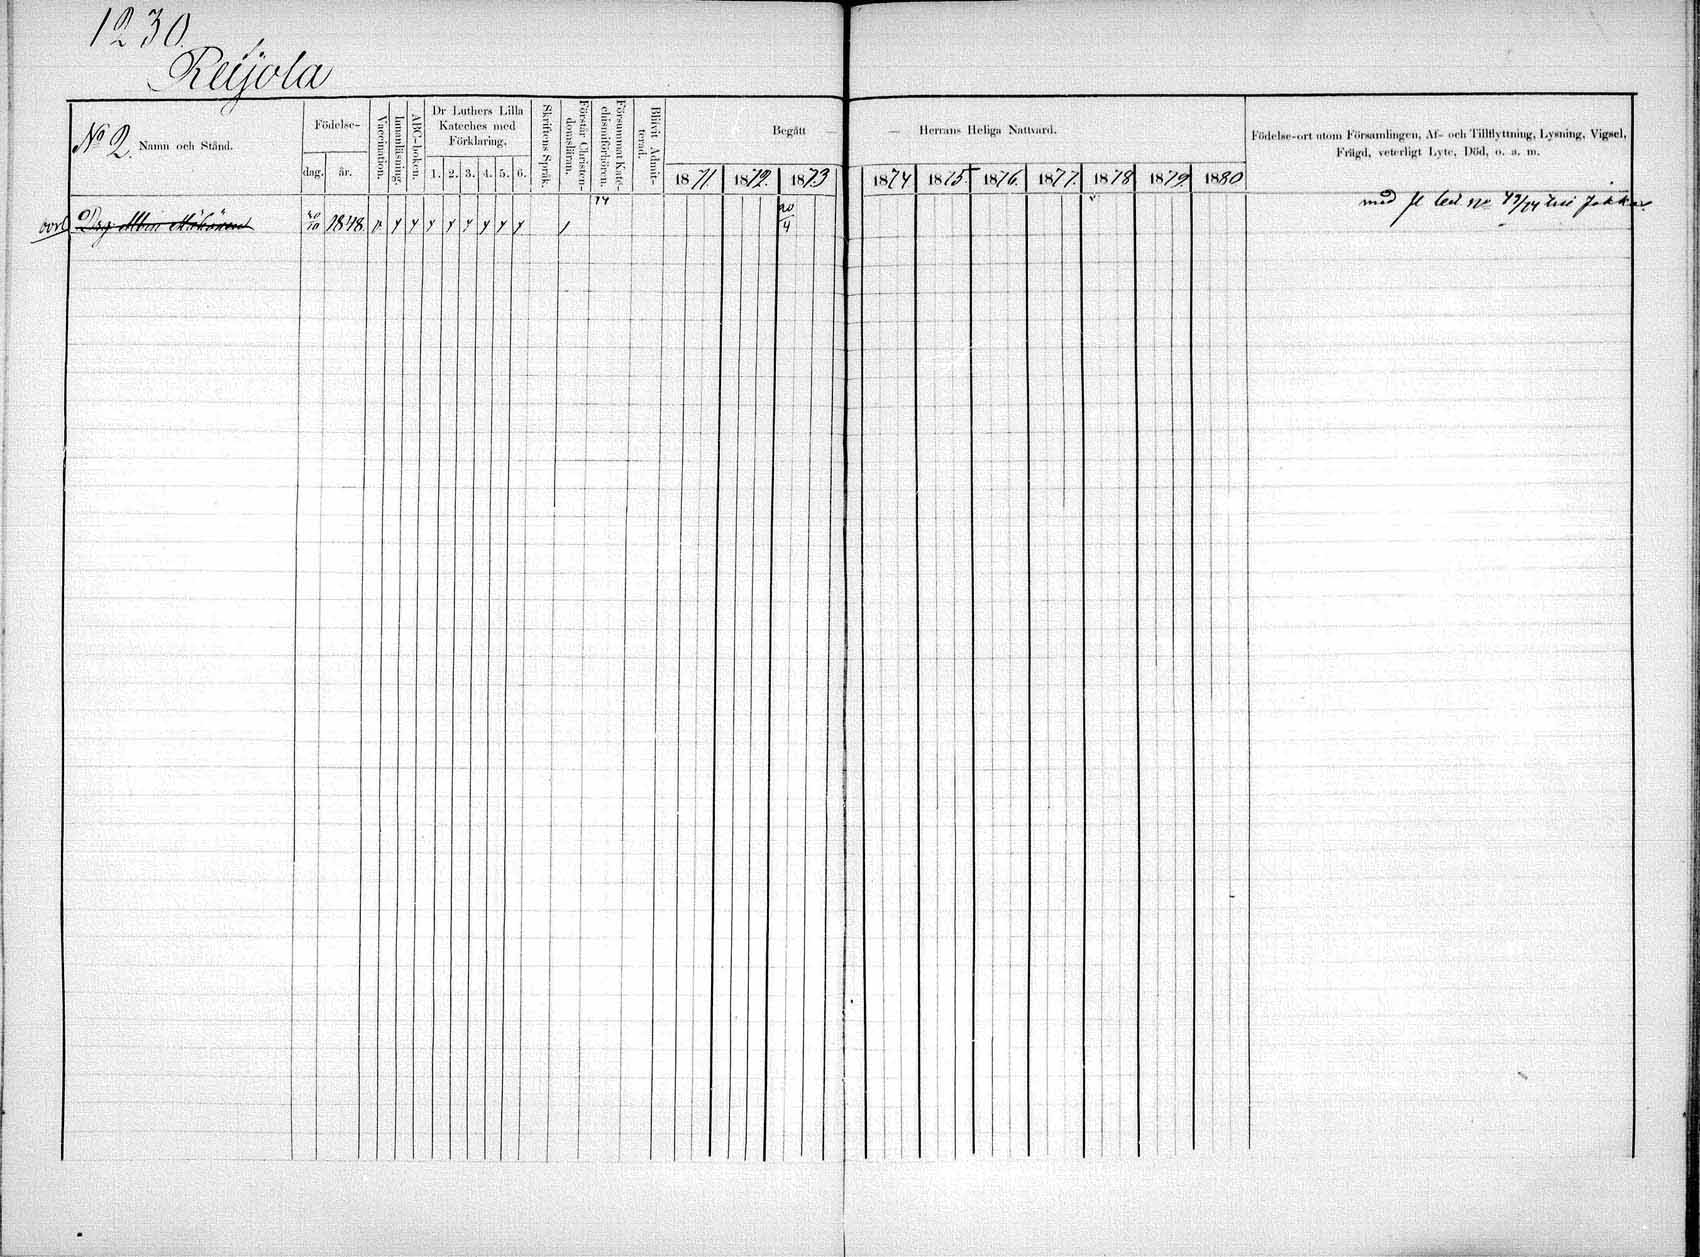 1230.
Reijola
No 2. Namn och Stånd.
Födelse-
dag. år.
Vaccination.
Innanläsning.
ABC-boken.
Dr Luthers Lilla
Kateches med
Förklaring.
1. 2. 3. 4. 5. 6.
Skriftens Språk.
Förstår Christen-
domsläran.
Försummat Kate-
chismiförhören.
Blifvit Admit-
terad.
Begått — — Herrans Heliga Nattvard.
1871. 1872. 1873 1874. 1875. 1876. 1877. 1878 1879. 1880
Födelse-ort utom Församlingen, Af- och Tillflyttning, Lysning, Vigsel,
Frägd, veterligt Lyte, Död, o. a. m.
74
1848. 20/4
med fl